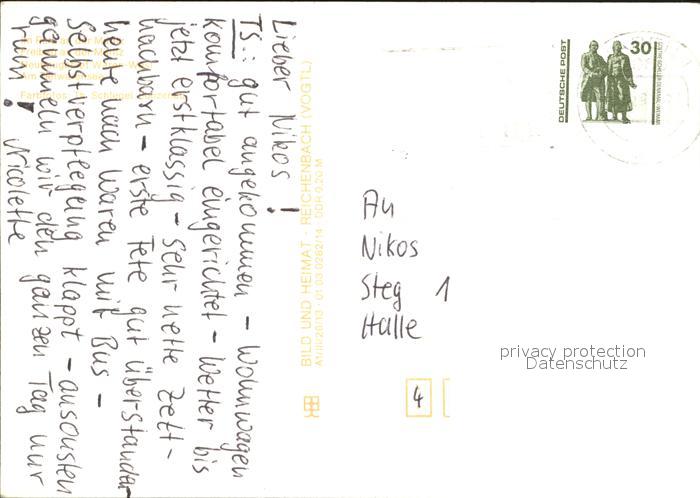 Lieber Nikos!
TS.: gut angekommen – Wohnwagen
komfortabel eingerichtet – Wetter bis
jetzt erstklassig – sehr nette Zelt-
nachbarn – erste Fete gut überstanden
heute nach Waren mit Bus –
Selbstverpflegung klappt – ansonsten
gammeln wir den ganzen Tag nur
rum! Nicolette
BILD UND HEIMAT · REICHENBACH (VOGTL)
A1/III/26/13 · 01 03 0262/14 · DDR 0,20 M
DEUTSCHE POST
30
GOETHE-SCHILLER-DENKMAL, WEIMAR
An
Nikos
Steg 1
Halle
4
privacy protection
Datenschutz